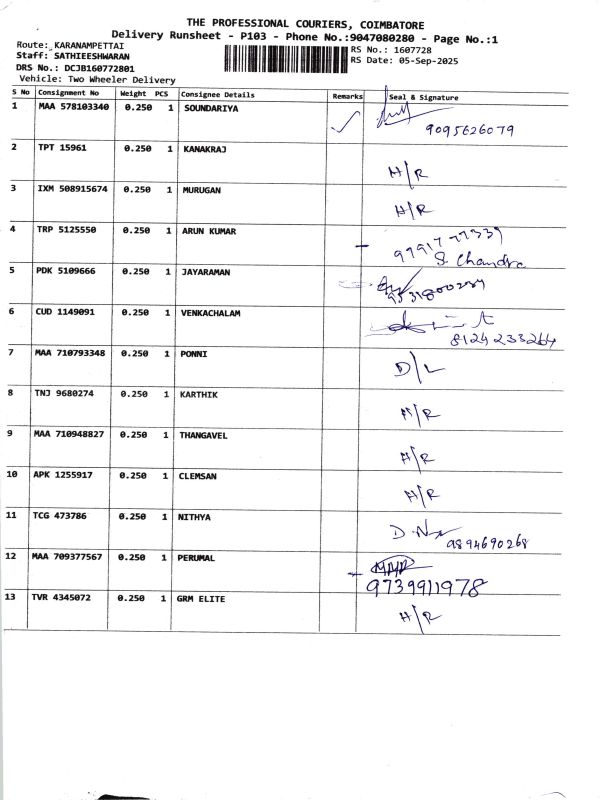 THE PROFESSIONAL COURIERS, COIMBATORE
Delivery Runsheet - P103 - Phone No.:9047080280 - Page No.:1
Route: KARANAMPETTAI
Staff: SATHIEESHWARAN
DRS No.: DCJB160772801
Vehicle: Two Wheeler Delivery
RS No.: 1607728
RS Date: 05-Sep-2025
S No Consignment No Weight PCS Consignee Details Remarks Seal & Signature
1 MAA 578103340 0.250 1 SOUNDARIYA
9095626079
2 TPT 15961 0.250 1 KANAKRAJ
H/R
3 IXM 508915674 0.250 1 MURUGAN
H/R
4 TRP 5125550 0.250 1 ARUN KUMAR
S. Chandra
5 PDK 5109666 0.250 1 JAYARAMAN
6 CUD 1149091 0.250 1 VENKACHALAM
8124233264
7 MAA 710793348 0.250 1 PONNI
D/L
8 TNJ 9680274 0.250 1 KARTHIK
H/R
9 MAA 710948827 0.250 1 THANGAVEL
H/R
10 APK 1255917 0.250 1 CLEMSAN
H/R
11 TCG 473786 0.250 1 NITHYA
9894690268
12 MAA 709377567 0.250 1 PERUMAL
9739911978
13 TVR 4345072 0.250 1 GRM ELITE
H/R